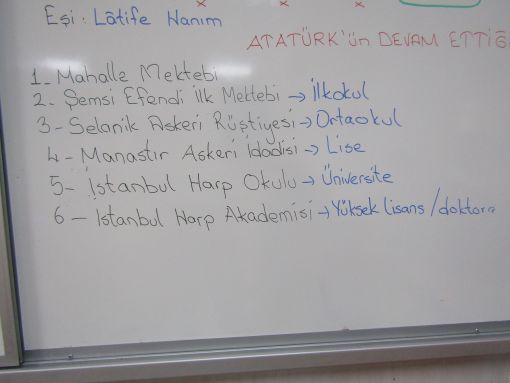 Eşi: Lâtife Hanım
ATATÜRK'ün DEVAM ETTİĞ
1- Mahalle Mektebi
2- Şemsi Efendi İlk Mektebi → İlkokul
3- Selanik Askeri Rüştiyesi → Ortaokul
4- Manastır Askeri İdadisi → Lise
5- İstanbul Harp Okulu → Üniversite
6- İstanbul Harp Akademisi → Yüksek lisans/doktora